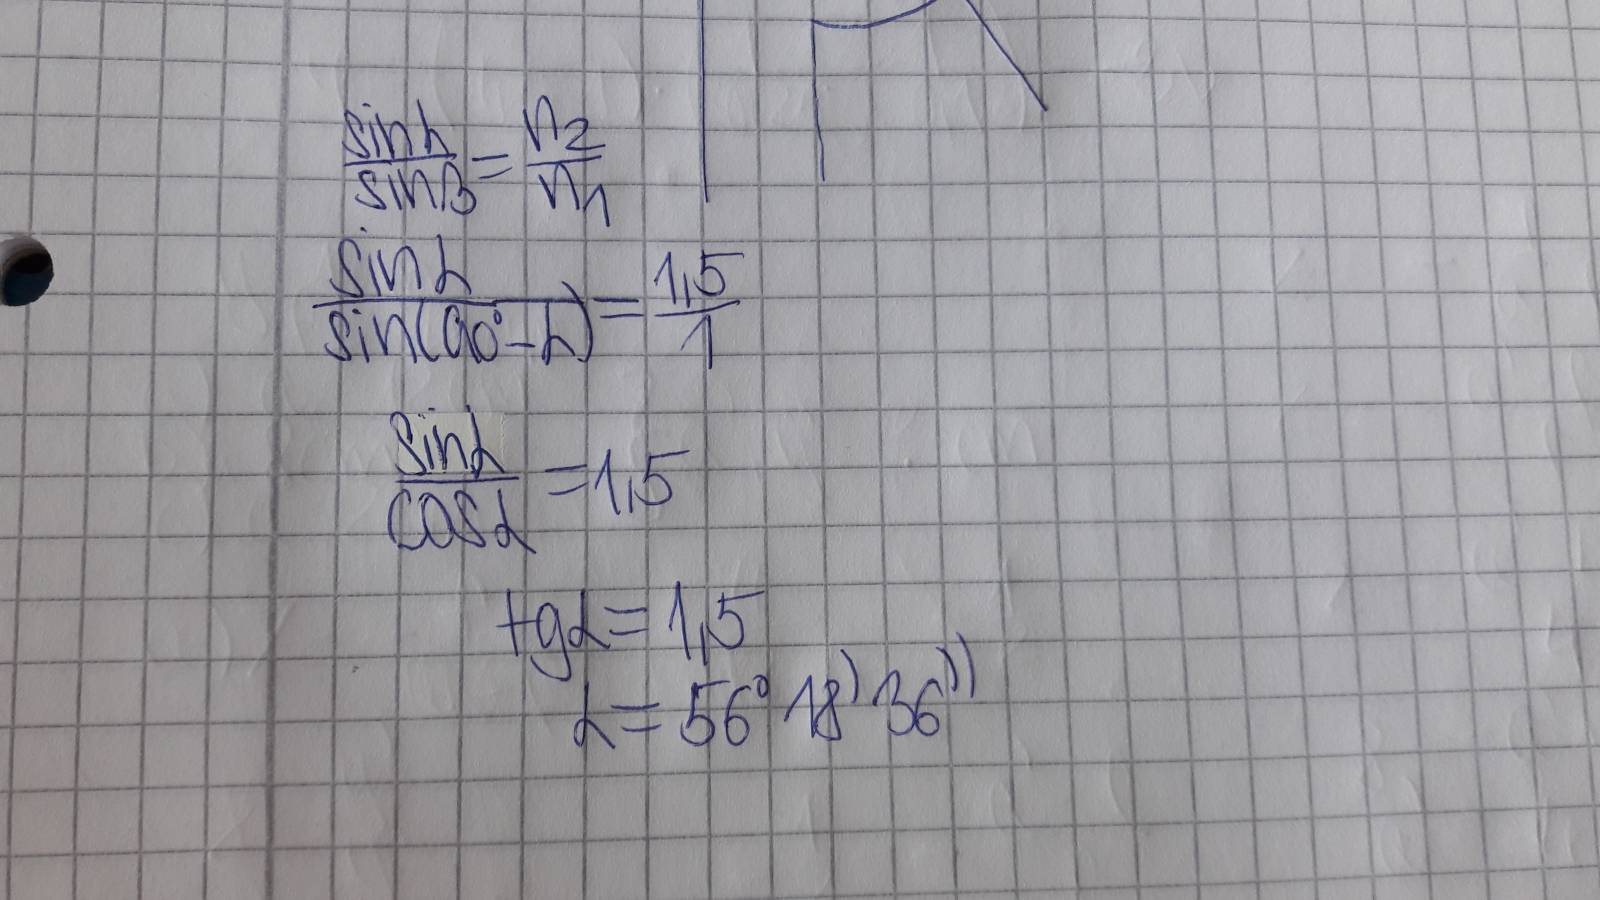 sinα/sinβ = n2/n1
sinα/sin(90°-α) = 1,5/1
sinα/cosα = 1,5
tgα = 1,5
α = 56° 18' 36''